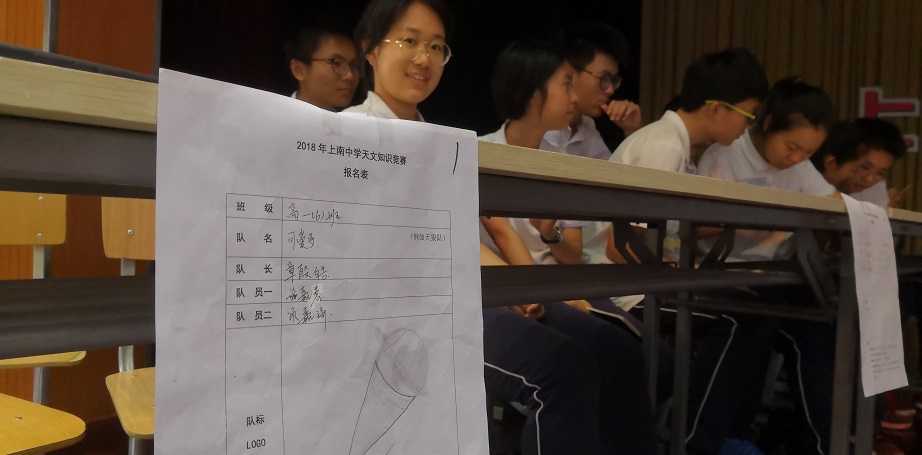 2018 年上南中学天文知识竞赛
报名表
班 级 高一(6)班
队 名 可爱多 (例如天狼队)
队 长 章殷皓
队 员一
队 员二
队标
LOGO